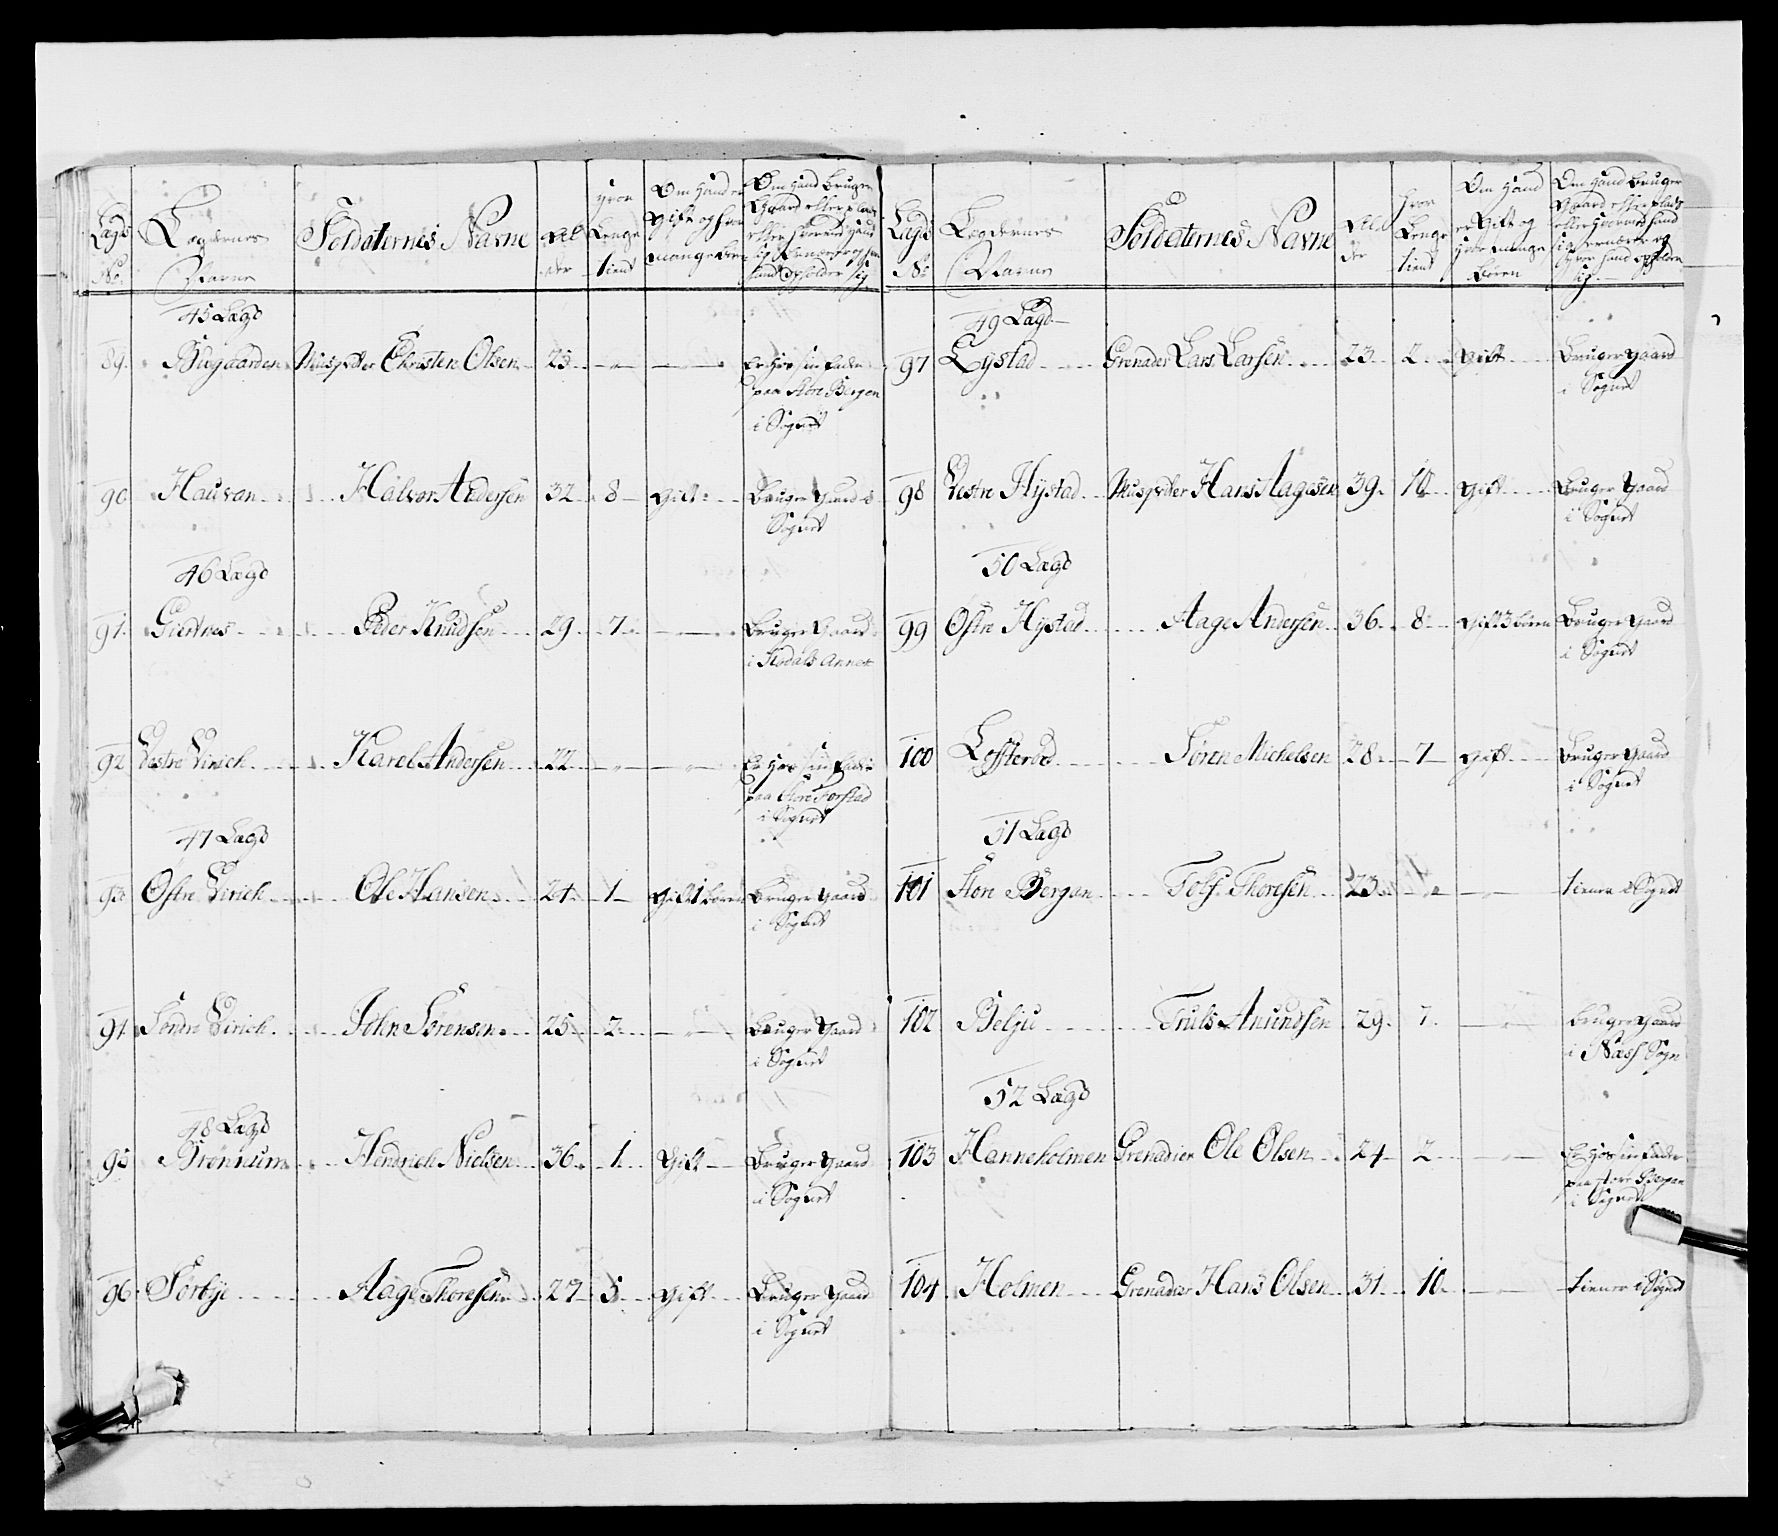 Lægd No. | Lægdernes Navne | Soldaternes Navne | Alder | Hvor Lenge tient | Om Hand er gift og har mange Børn | Om Hand bruger Gaard eller plads eller hvorved hand sig ernærer og hvor hand opholder sig
45 Lægd
89. Biugaarden Musqvtter Christen Olsen 25 - - Er hos sin Fader
paa Store Bergen
i Sognet
90 Hauvan Halvor Andersen 32 8 gift Bruger Gaard i
Sognet
46 Lægd
91. Giertnes Peder Knudsen 29 7 - Bruger Gaard
i Aadals Annex
92 Vestre Virich Karel Andersen 22 - - Er hos sin Fader
paa Store Forstad
i Sognet
47 Lægd
93 Østre Virich Ole Hansen 24 1 gift 1 Børn Bruger Gaard
i Sognet
94 Søndre Virich John Sørensen 25 2 - Bruger Gaard
i Sognet
48 Lægd
95 Brønnum Hendrich Nielsen 36 1 Gift Bruger Gaard
i Sognet
96 Sørbye Aage Thoresen 27 5 gift Bruger Gaard
i Sognet
Lægd No. | Lægdernes Navne | Soldaternes Navne | Alder | Hvor Lenge tient | Om Hand er Gift og hvor mange Børen | Om Hand bruger Gaard eller plads eller hvorved hand sig ernærer og hvor hand opholder sig
49 Lægd
97 Lystad Grenader Lars Larsen 23 2 gift Bruger gaard
i Sognet
98 Vestre Hystad Musqvtter Hans Aagesen 39 10 gift Bruger Gaard
i Sognet
50 Lægd
99 Østre Hystad Aage Andersen 36 8 gift 3 børen Bruger Gaard
i Sognet
100 Lofsterød Søren Michelsen 28 7 gift Bruger Gaard
i Sognet
51 Lægd
101 Store Bergan Tolf Thoresen 23 - - tiener i Sognet
102 Belju Truls Anundsen 29 7 - bruger gaard
i Næss Sogn
52 Lægd
103 Hanneholmen Grenadier Ole Olsen 24 2 - Er hos sin Fader
paa store Bergan
i Sognet
104 Holmen Grenadier Hans Olsen 31 10 - tiener i Sognet